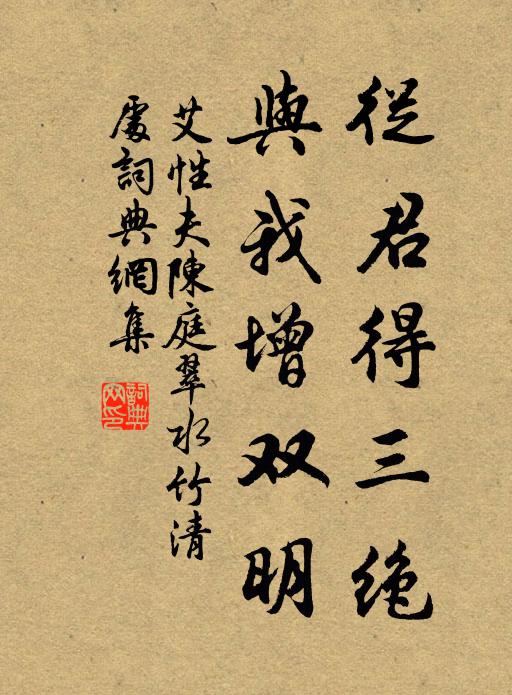 從君得三绝
與我增双明
艾性夫陳庭翠水竹清
處詞典網集
詞典網印